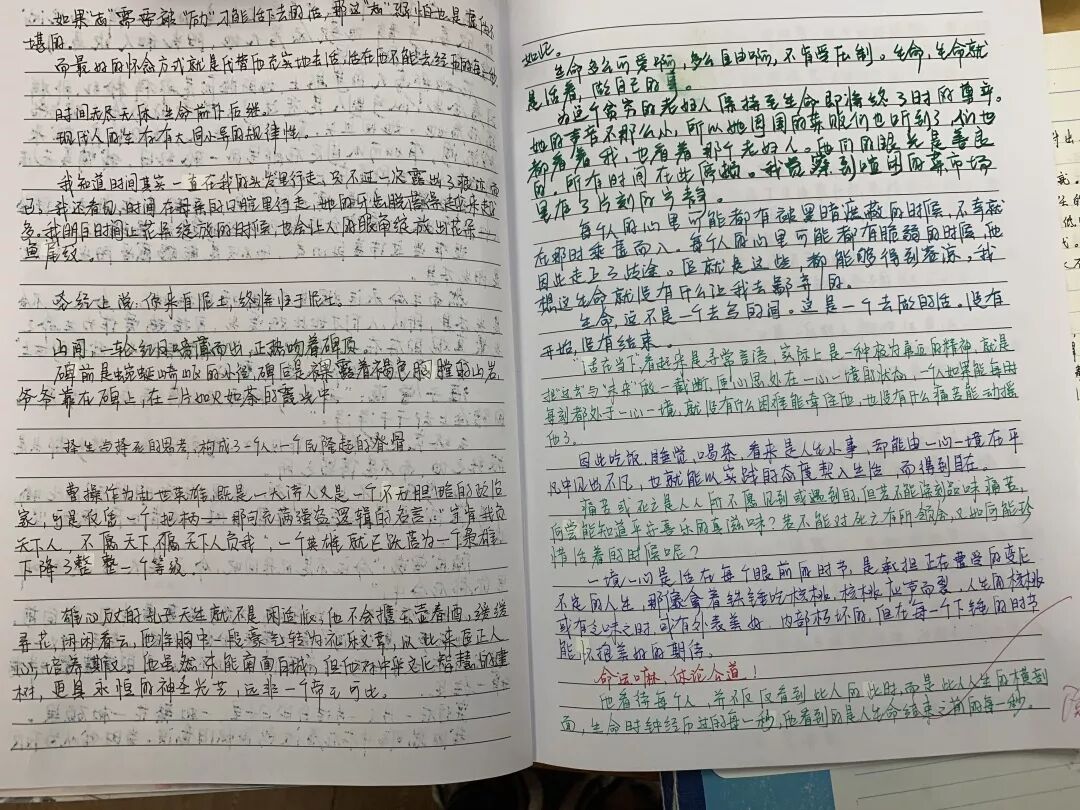 如果"志"需要被"励"才能活下去的话,那这"志"恐怕也是虚伪不
堪的。
而最好的怀念方式就是代替他充实地去活,活在他不能去经历的每一秒
时间无尽无休,生命前仆后继。
现代人的生存有大同小异的规律性。
我知道时间其实一直在我的头发里行走,只不过一次露出了痕迹而
已,我还看见,时间在母亲的口腔里行走,她的牙齿脱落得越来越
多。我明白时间让花朵绽放的时候,也会让人的眼角绽放出花朵——
鱼尾纹。
圣经上说:你来自泥土,终将归于泥土。
山间,一轮红日喷薄而出,正热吻着碑顶。
碑前是蜿蜒崎岖的小径,碑后是裸露着褐色胸膛的山岩
爷爷靠在碑上,在一片如火如荼的霞光中
择生与择死的思考,构成了一个人、一个民族隆起的脊骨。
曹操作为乱世英雄,既是一大诗人又是一个不无胆略的政治
家,可是仅留一个把柄——那句充满强盗逻辑的名言:"宁肯我负
天下人,不愿天下不愿天下人负我",一个英雄就已跌落为一个枭雄,
下降了整整一个等级
雄心成灰的孔子天生就不是闲适派,他不会携壶赏春酒,缓缓
寻花,闲闲看云,他将胸中一段豪气转为礼乐文章,以此来匡正人
心,培养 他虽然未能南面百城,但他对中华文化智慧的建
树,更具永恒的神圣光芒,远非一个帝王可比。
如此。
生命多么可爱啊,多么自由啊,不肯受压制。生命,生命就
是活着,做自己的事。
为这个贫穷的老妇人保持至生命即将终了时的尊严。
她的声音不那么小,所以她周围的菜贩们也听到了,们也
都看着我,也看着那个老妇人。他们的眼光是善良
的,所有时间在此停顿。我觉察到喧闹的菜市场
里有了片刻的安静
每个人的心里可能都有被黑暗遮蔽的时候,不幸就
在那时乘虚而入。每个人的心里可能都有脆弱的时候,他
因此走上了歧途。但就是这些,都能够得到 ,我
想这生命就没有什么让我去鄙弃的。
生命,这不是一个去多的问。这是一个去做的活。没有
开始,没有结束。
活在当下,看起来是寻常言语,实际上是一种极为勇迈的精神,就是
把"过去"与"未来"做一截断,同心思处在一心一境的状态,一个人如果能每时
每刻都处于一心一境,就没有什么困难能牵住他,也没有什么痛苦能动摇
他了。
因此吃饭、睡觉、喝茶,看来是人生小事,却能由一心一境在平
凡中见出不凡,也就能以实践的态度契入生活,而得到自在。
痛苦或死亡是人人所不愿见到或遇到的,但若不能深刻品味痛苦,
何尝能知道平安喜乐的真滋味?若不能对死亡有所领会,又如何能珍
惜活着的时候呢?
一境一心是活在每个眼前的时节,是承担正在遭受的变化
不定的人生,那像拿着铁锤吃核桃,核桃应声而裂,人生的核桃
或有乏味之时,或有外表美好、内部朽坏的,但在每一个下锤的时节
能怀抱美好的期待。
命运嘛,休论公道!
他看待每个人,并不仅仅看到此人的此时,而是此人人生的横剖
面,生命时钟经历过的每一秒,他看到的是人生命结束之前的每一秒。